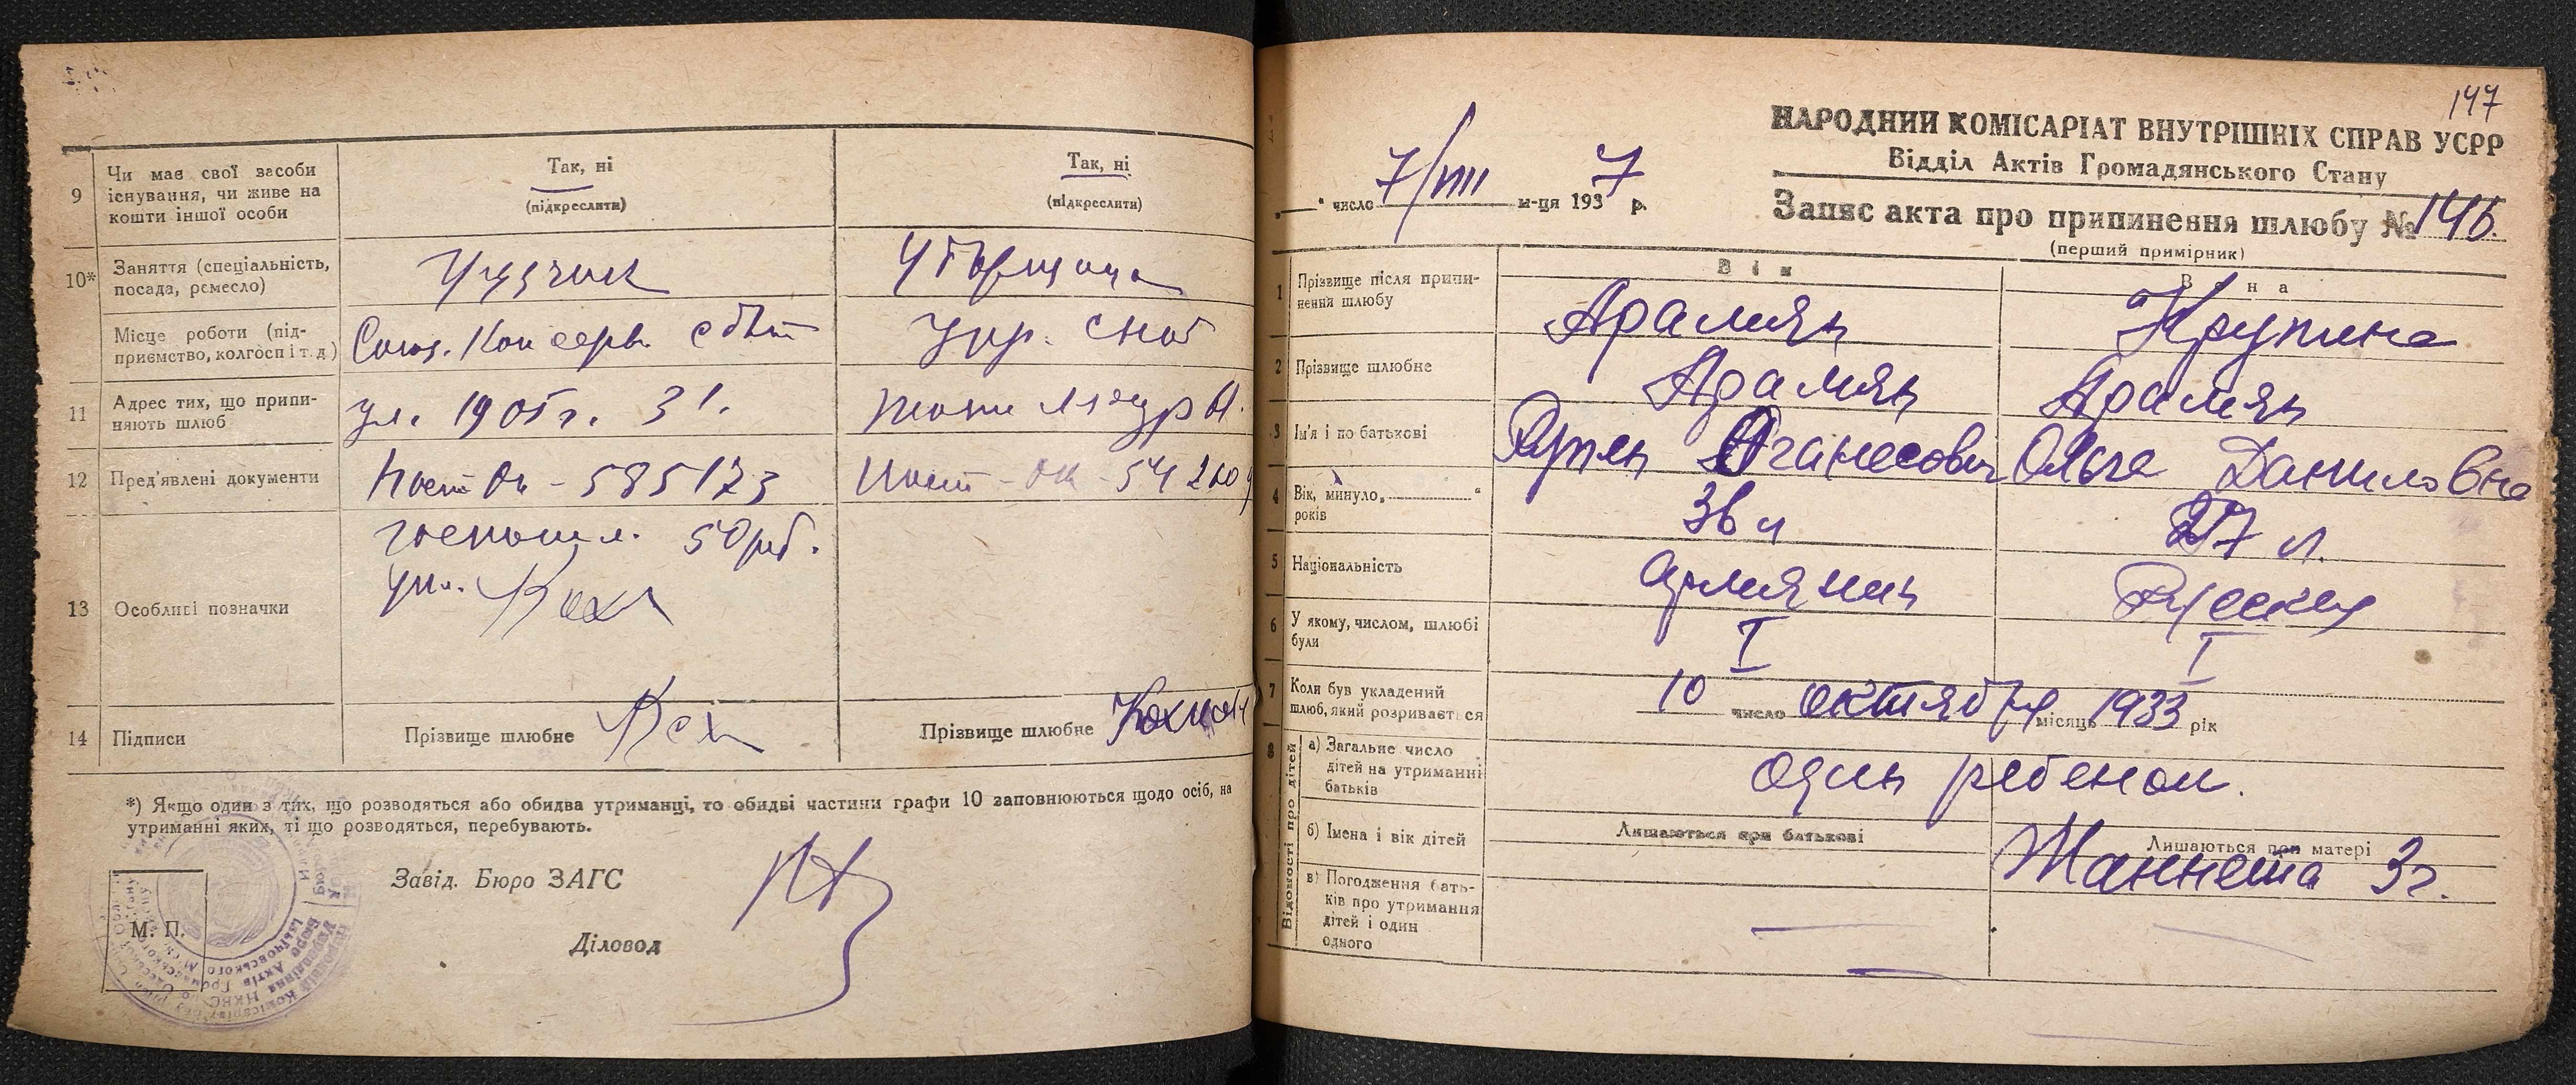 9 Чи має свої засоби існування, чи живе на кошти іншої особи
Так, ні
(підкреслити)
Так, ні
(підкреслити)
10* Заняття (спеціальність, посада, ремесло)
Місце роботи (підприємство, колгосп і т. д.)
Союз. Консерв. сбыт
11 Адрес тих, що припиняють шлюб
ул. 1905 г. 31.
12 Пред'явлені документи
585173
13 Особливі позначки
госпошл. 50 руб.
14 Підписи
Прізвище шлюбне
Прізвище шлюбне
*) Якщо один з тих, що розводяться або обидва утриманці, то обидві частини графи 10 заповнюються щодо осіб, на
утриманні яких, ті що розводяться, перебувають.
Завід. Бюро ЗАГС
М. П.
Діловод
147
НАРОДНИЙ КОМІСАРІАТ ВНУТРІШНІХ СПРАВ УСРР
Відділ Актів Громадянського Стану
„ “ число 7/VIII м-ця 1937 р.
Запис акта про припинення шлюбу № 146.
(перший примірник)
Він
Вона
1 Прізвище після припинення шлюбу
Арамян
Крупина
2 Прізвище шлюбне
Арамян
Арамян
3 Ім'я і по батькові
Рупен Оганесович
Ольга Даниловна
4 Вік, минуло „ “ років
36 л
27 л.
5 Національність
армянин
Русская
6 У якому, числом, шлюбі були
I
I
7 Коли був укладений шлюб, який розривається
10 число октября місяць 1933 рік
8 Відомості про дітей
а) Загальне число дітей на утриманні батьків
один ребенок.
б) Імена і вік дітей
Лишаються при батькові
Лишаються при матері
Жаннета 3 г.
в) Погодження батьків про утримання дітей і один одного